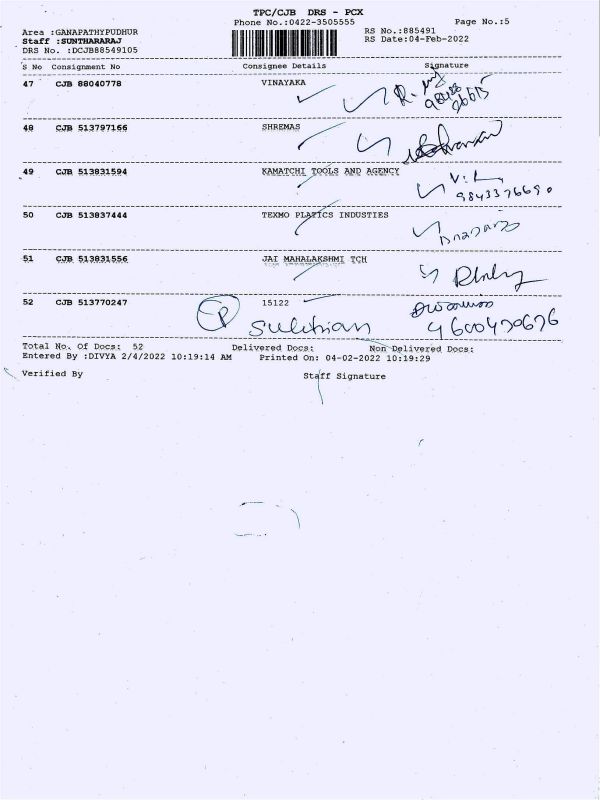 TPC/CJB DRS - PCX
Phone No.:0422-3505555 Page No.:5
Area :GANAPATHYPUDHUR RS No.:885491
Staff :SUNTHARARAJ RS Date:04-Feb-2022
DRS No. :DCJB88549105
S No Consignment No Consignee Details Signature
47 CJB 88040778 VINAYAKA
48 CJB 513797166 SHREMAS
49 CJB 513831594 KAMATCHI TOOLS AND AGENCY
9843376690
50 CJB 513837444 TEXMO PLATICS INDUSTIES
51 CJB 513831556 JAI MAHALAKSHMI TCH
52 CJB 513770247 15122
Total No. Of Docs: 52 Delivered Docs: Non Delivered Docs:
Entered By :DIVYA 2/4/2022 10:19:14 AM Printed On: 04-02-2022 10:19:29
Verified By Staff Signature